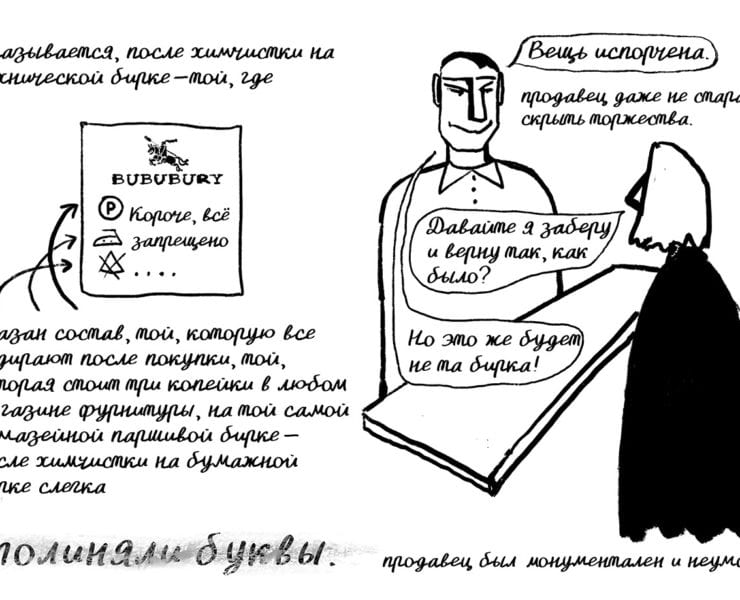 азывается, после химчистки на
хнической бирке – той, где
BUBUBURY
P Короче, всё
запрещено
. . . .
азан состав, той, которую все
дирают после покупки, той,
торая стоит три копейки в любом
газине фурнитуры, на той самой
мазейной паршивой бирке –
сле химчистки на бумажной
рке слегка
полиняли буквы.
Вещь испорчена.
продавец даже не стара
скрыть торжества.
Давайте я заберу
и верну так, как
было?
Но это же будет
не та бирка!
продавец был монументален и неумо